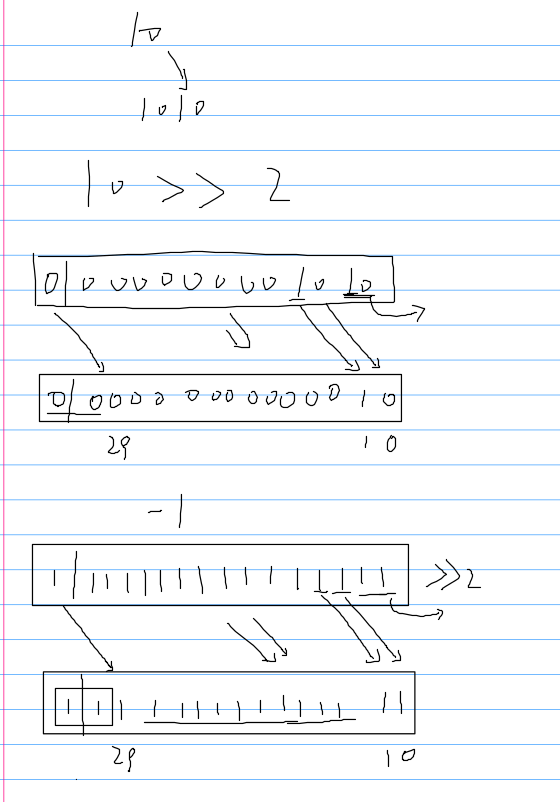 10
1010
10 >> 2
0 0 0 0 0 0 0 0 0 1 0 1 0
0 0 0 0 0 0 0 0 0 0 0 0 0 0 1 0
29 1 0
-1
1 1 1 1 1 1 1 1 1 1 1 1 1 1 1 1 >>2
1 1 1 1 1 1 1 1 1 1 1 1 1 1 1
29 1 0